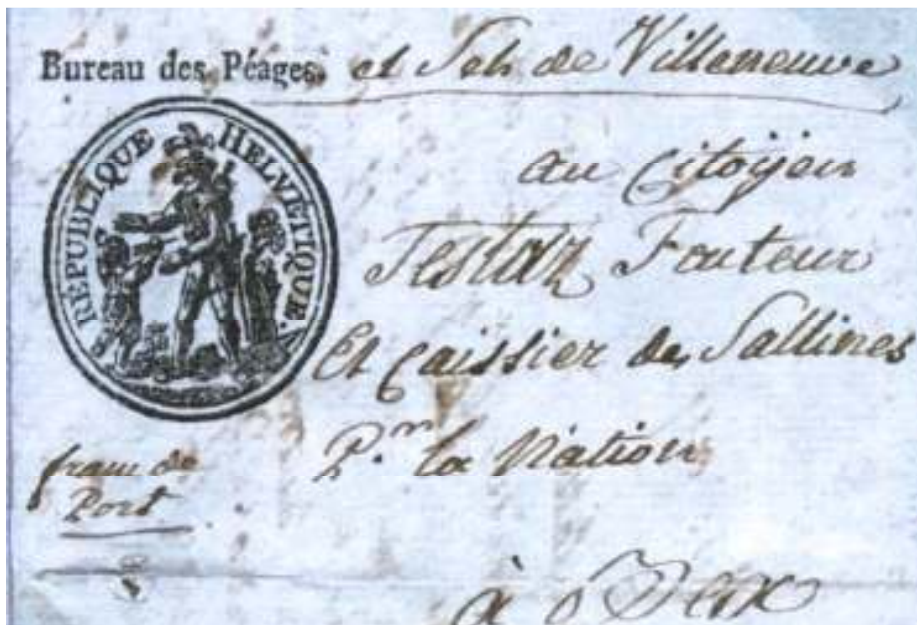 Bureau des Péages. et Sels de Villeneuve
RÉPUBLIQUE HELVETIQUE.
au Citoÿen
Testaz Facteur
Et Caissier de Sallines
la Nation
franc de
Port
à Bex